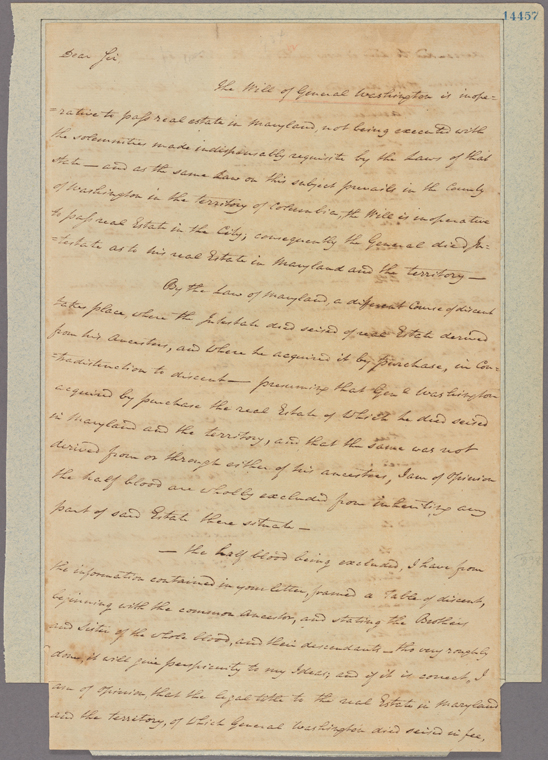 14457
Dear Sir
The Will of General Washington is inope-
=rative to pass real estate in Maryland, not being executed with
the solemnities made indispensably requisite by the Laws of that
state — and as the same Laws on this subject prevails in the County
of Washington in the territory of Columbia, the Will is inoperative
to pass real Estate in the City; consequently the General died In-
=testate as to his real Estate in Maryland and the territory —
By the Law of Maryland, a different Course of descent
takes place, where the Intestate died seised of real Estate derived
from his Ancestors, and where he acquired it by purchase, in Con-
=tradistinction to descent — presuming that Genl. Washington
acquired by purchase the real Estate of which he died seised
in Maryland and the territory, and that the same was not
derived from or through either of his ancestors, I am of Opinion
the half blood are wholly excluded from inheriting any
part of said Estate there situate —
— the half blood being excluded, I have from
the information contained in your letter, framed a Table of descent,
beginning with the common Ancestor, and stating the Brothers
and Sister of the whole blood, and their descendants — tho very roughly
done, it will give perspicuity to my Ideas, and if it is correct, I
am of opinion, that the legal title to the real Estate in Maryland
and the territory, of which General Washington died seised in fee,